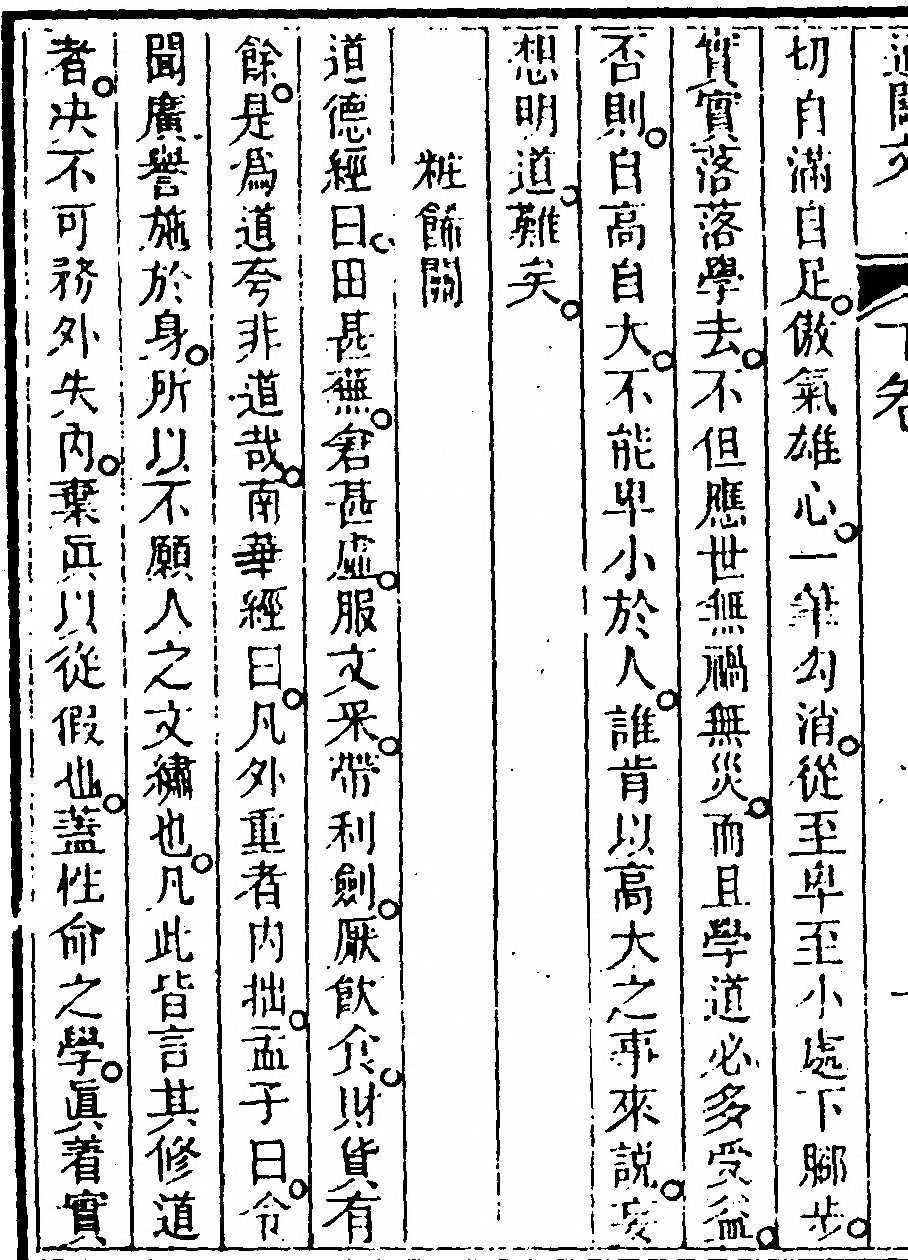 通關文
下卷
切自滿自足。傲氣雄心。一筆勾消。從至卑至小處下腳步。
實實落落學去。不但應世無禍無災。而且學道必多受益。
否則。自高自大。不能卑小於人。誰肯以高大之事來說。妄
想明道。難矣。
粧餙關
道德經曰。田甚蕪。倉甚虛。服文采。帶利劍。厭飲食。財貨有
餘。是爲道夸非道哉。南華經曰。凡外重者內拙。孟子曰。令
聞廣譽施於身。所以不願人之文繡也。凡此皆言其修道
者。決不可務外失內。棄眞以從假也。蓋性命之學。眞着實